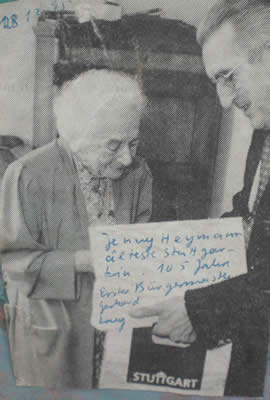 28.12.95
Jenny Heymann
älteste Stuttgar-
terin. 105 Jahre
Erster Bürgermeister
Gerhard
Lang
STUTTGART